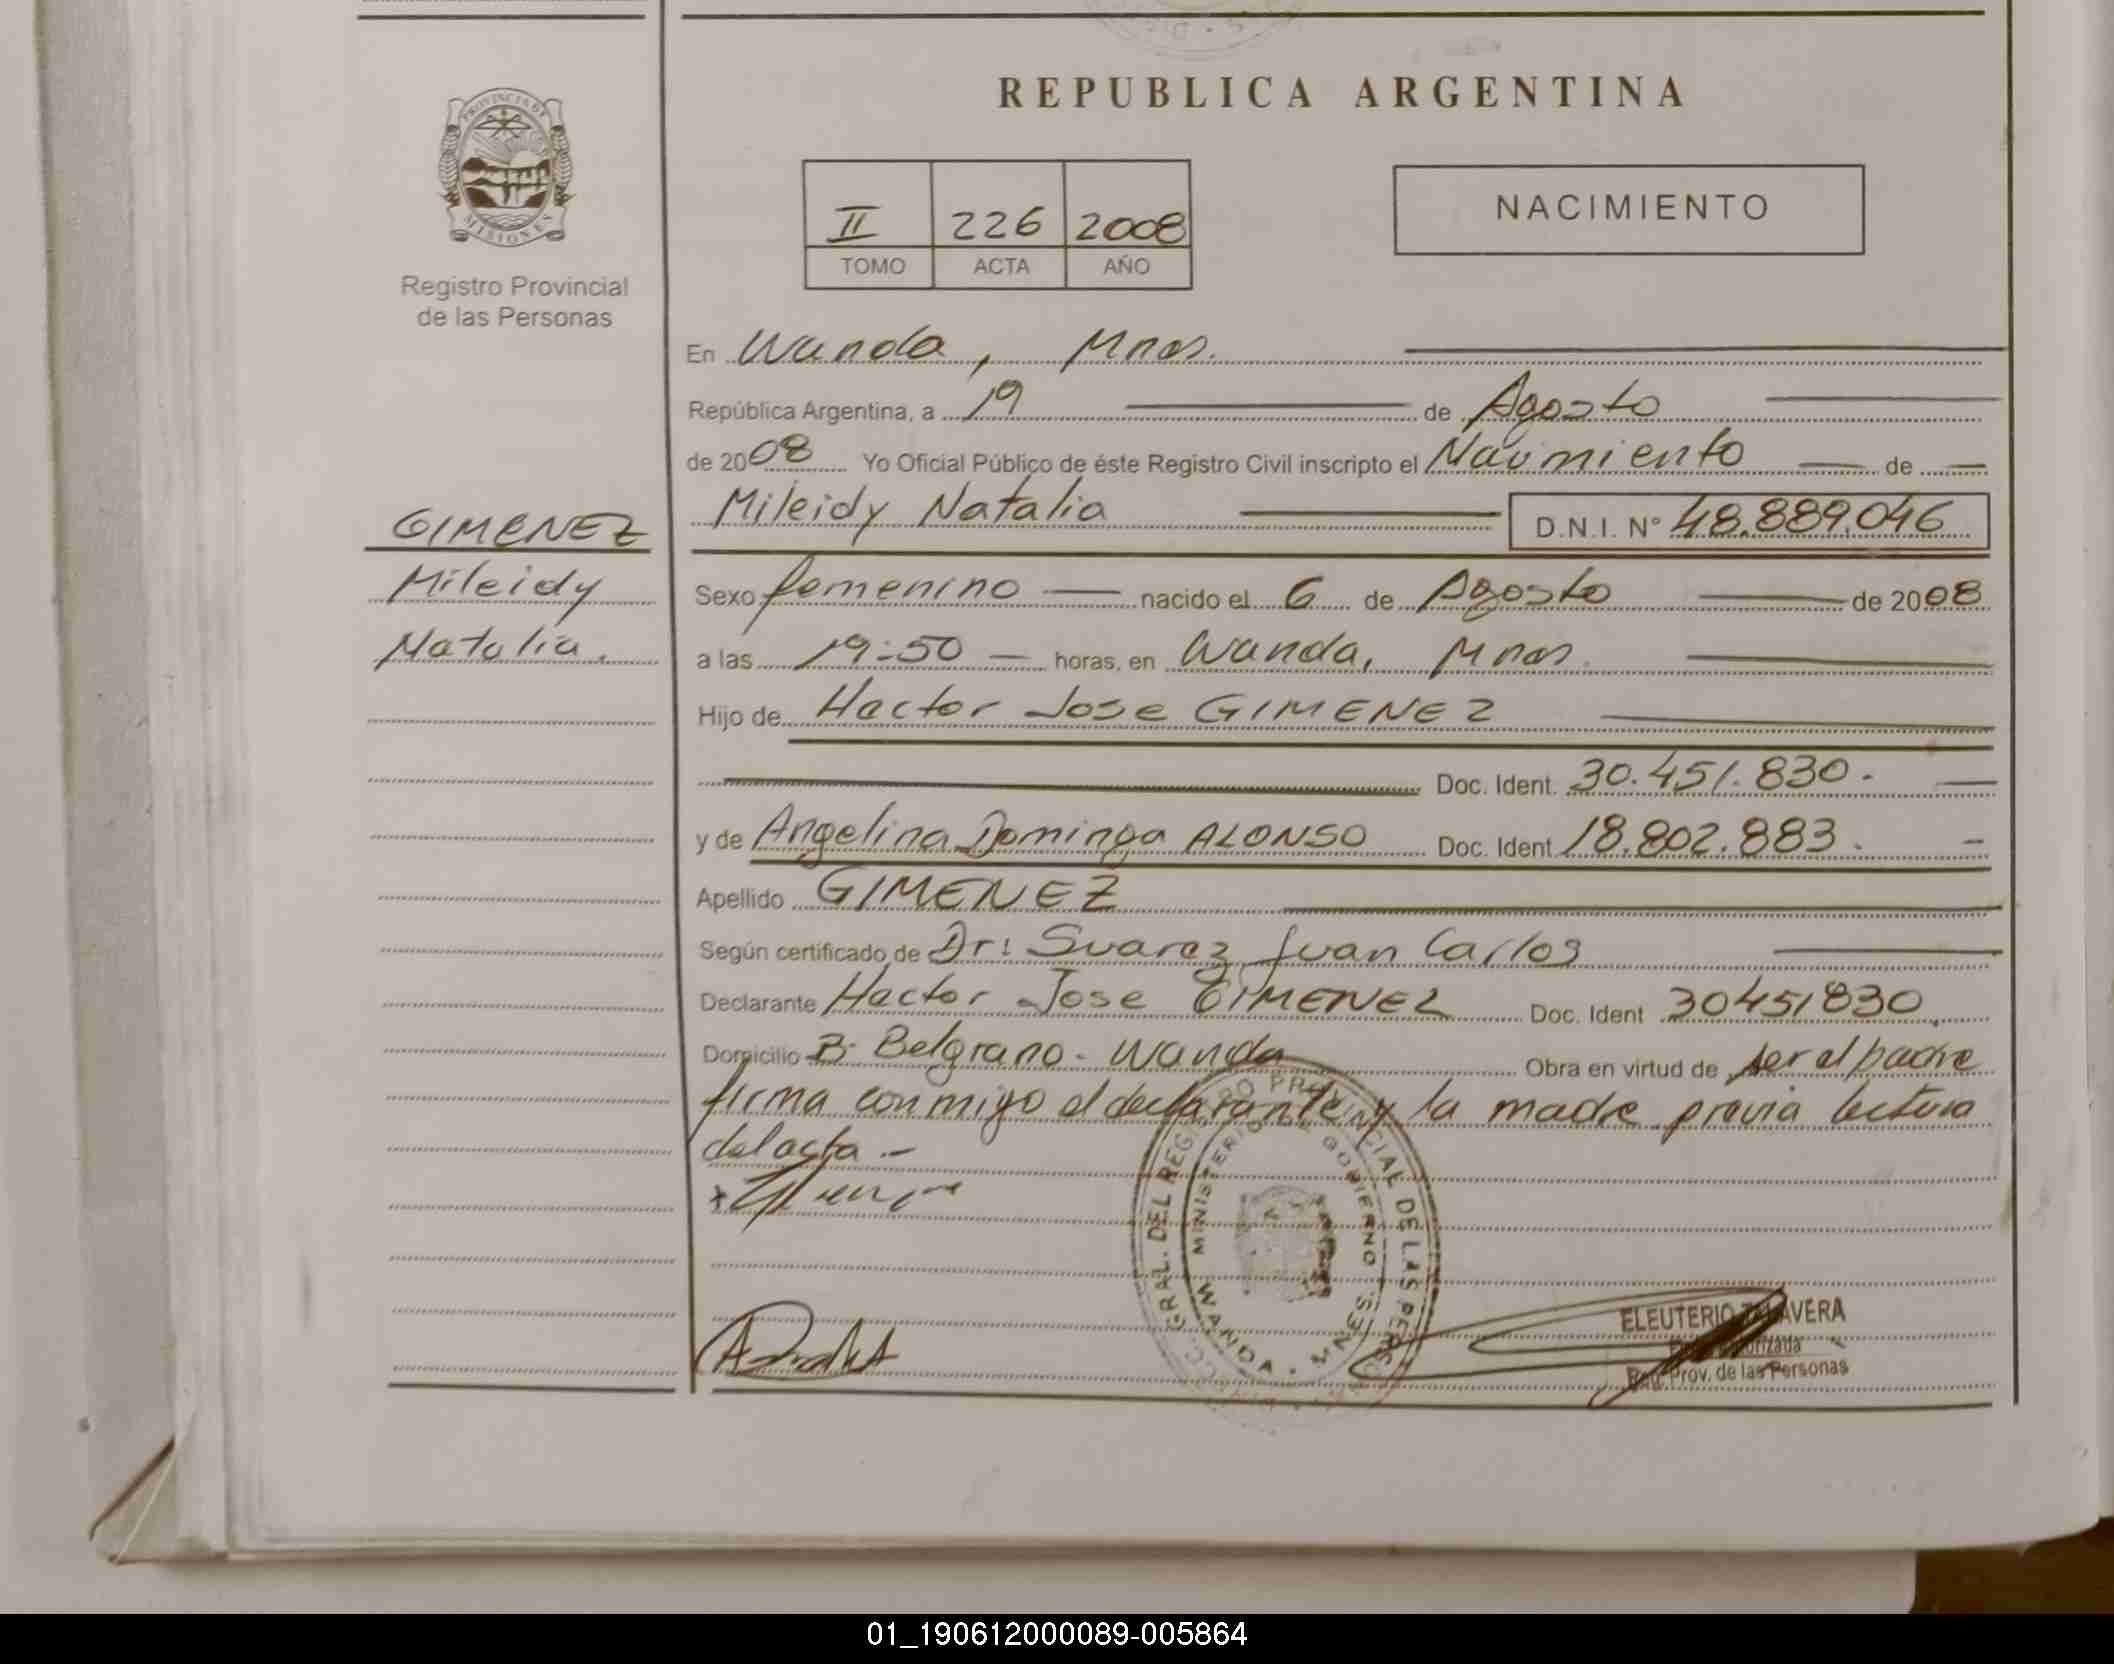 REPUBLICA ARGENTINA
PROVINCIA DE
MISIONES
Registro Provincial
de las Personas
II 226 2008
TOMO ACTA AÑO
NACIMIENTO
En Wanda, Mnes.
República Argentina, a 19 de Agosto
de 2008 Yo Oficial Público de éste Registro Civil inscripto el Nacimiento de
Mileidy Natalia D.N.I. Nº 48.889.046
GIMENEZ
Mileidy
Natalia.
Sexo femenino nacido el 6 de Agosto de 2008
a las 19:50 horas, en Wanda, Mnes.
Hijo de Hector Jose GIMENEZ
Doc. Ident. 30.451.830.
y de Angelina Dominga ALONSO Doc. Ident 18.802.883.
Apellido GIMENEZ
Según certificado de Dr: Suarez Juan Carlos
Declarante Hector Jose GIMENEZ Doc. Ident 30451830
Domicilio B. Belgrano - Wanda Obra en virtud de ser el padre
firma conmigo el declarante y la madre previa lectura
del acta.-
GRAL. DEL REGISTRO PROVINCIAL DE LAS PERS
MINISTERIO DE GOBIERNO
WANDA - MNES.
ELEUTERIO TALAVERA
Reg. Prov. de las Personas
01_190612000089-005864